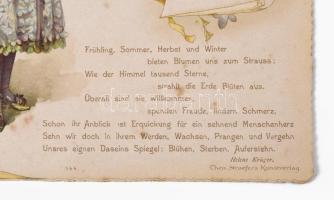 Frühling, Sommer, Herbst und Winter
bieten Blumen uns zum Strauss;
Wie der Himmel tausend Sterne,
strahlt die Erde Blüten aus.
Überall sind sie willkommen,
spenden Freude, lindern Schmerz,
Schon ihr Anblick ist Erquickung für ein sehnend Menschenherz
Sehn wir doch in ihrem Werden, Wachsen, Prangen und Vergehn
Unsres eignen Daseins Spiegel: Blühen, Sterben, Auferstehn.
Helene Krüger.
Theo. Stroefers Kunstverlag.